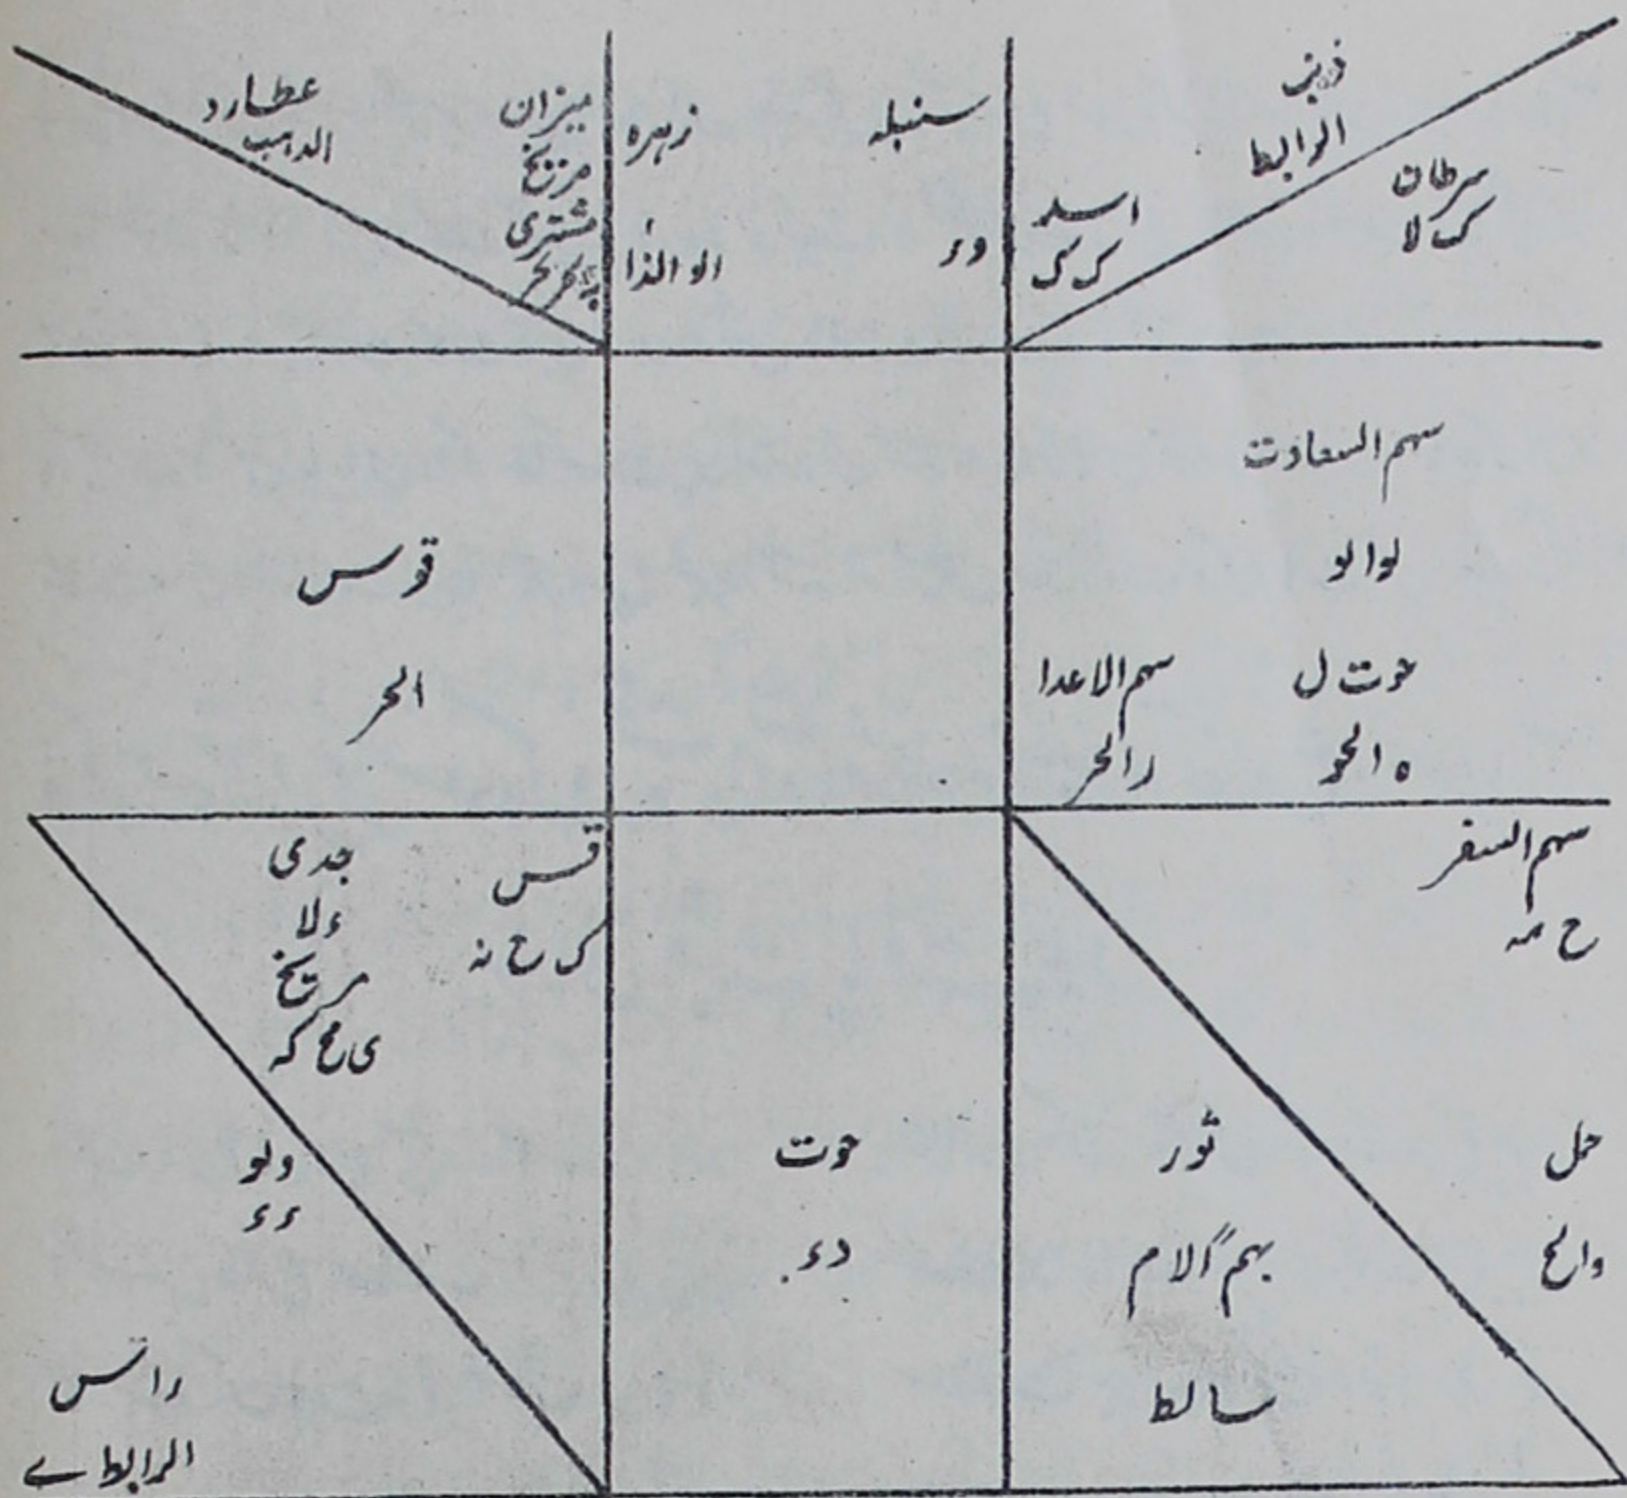 ذنب
الرابط
سرطان
ک لا
اسد
ک ک
سنبلہ
وء
زہرہ
الو الذا
میزان
مریخ
مشتری
عطارد
الدہب
سہم السعادت
لوالو
حوت ل
ہ الحو
سہم الاعدا
رالحر
قوس
الحر
سہم السفر
ح مہ
حمل
والح
ثور
سہم آلام
سالط
حوت
دء
قس
ک ح نہ
جدی
ءلا
مریخ
ی مح کہ
دلو
ءء
راس
الرابط ے